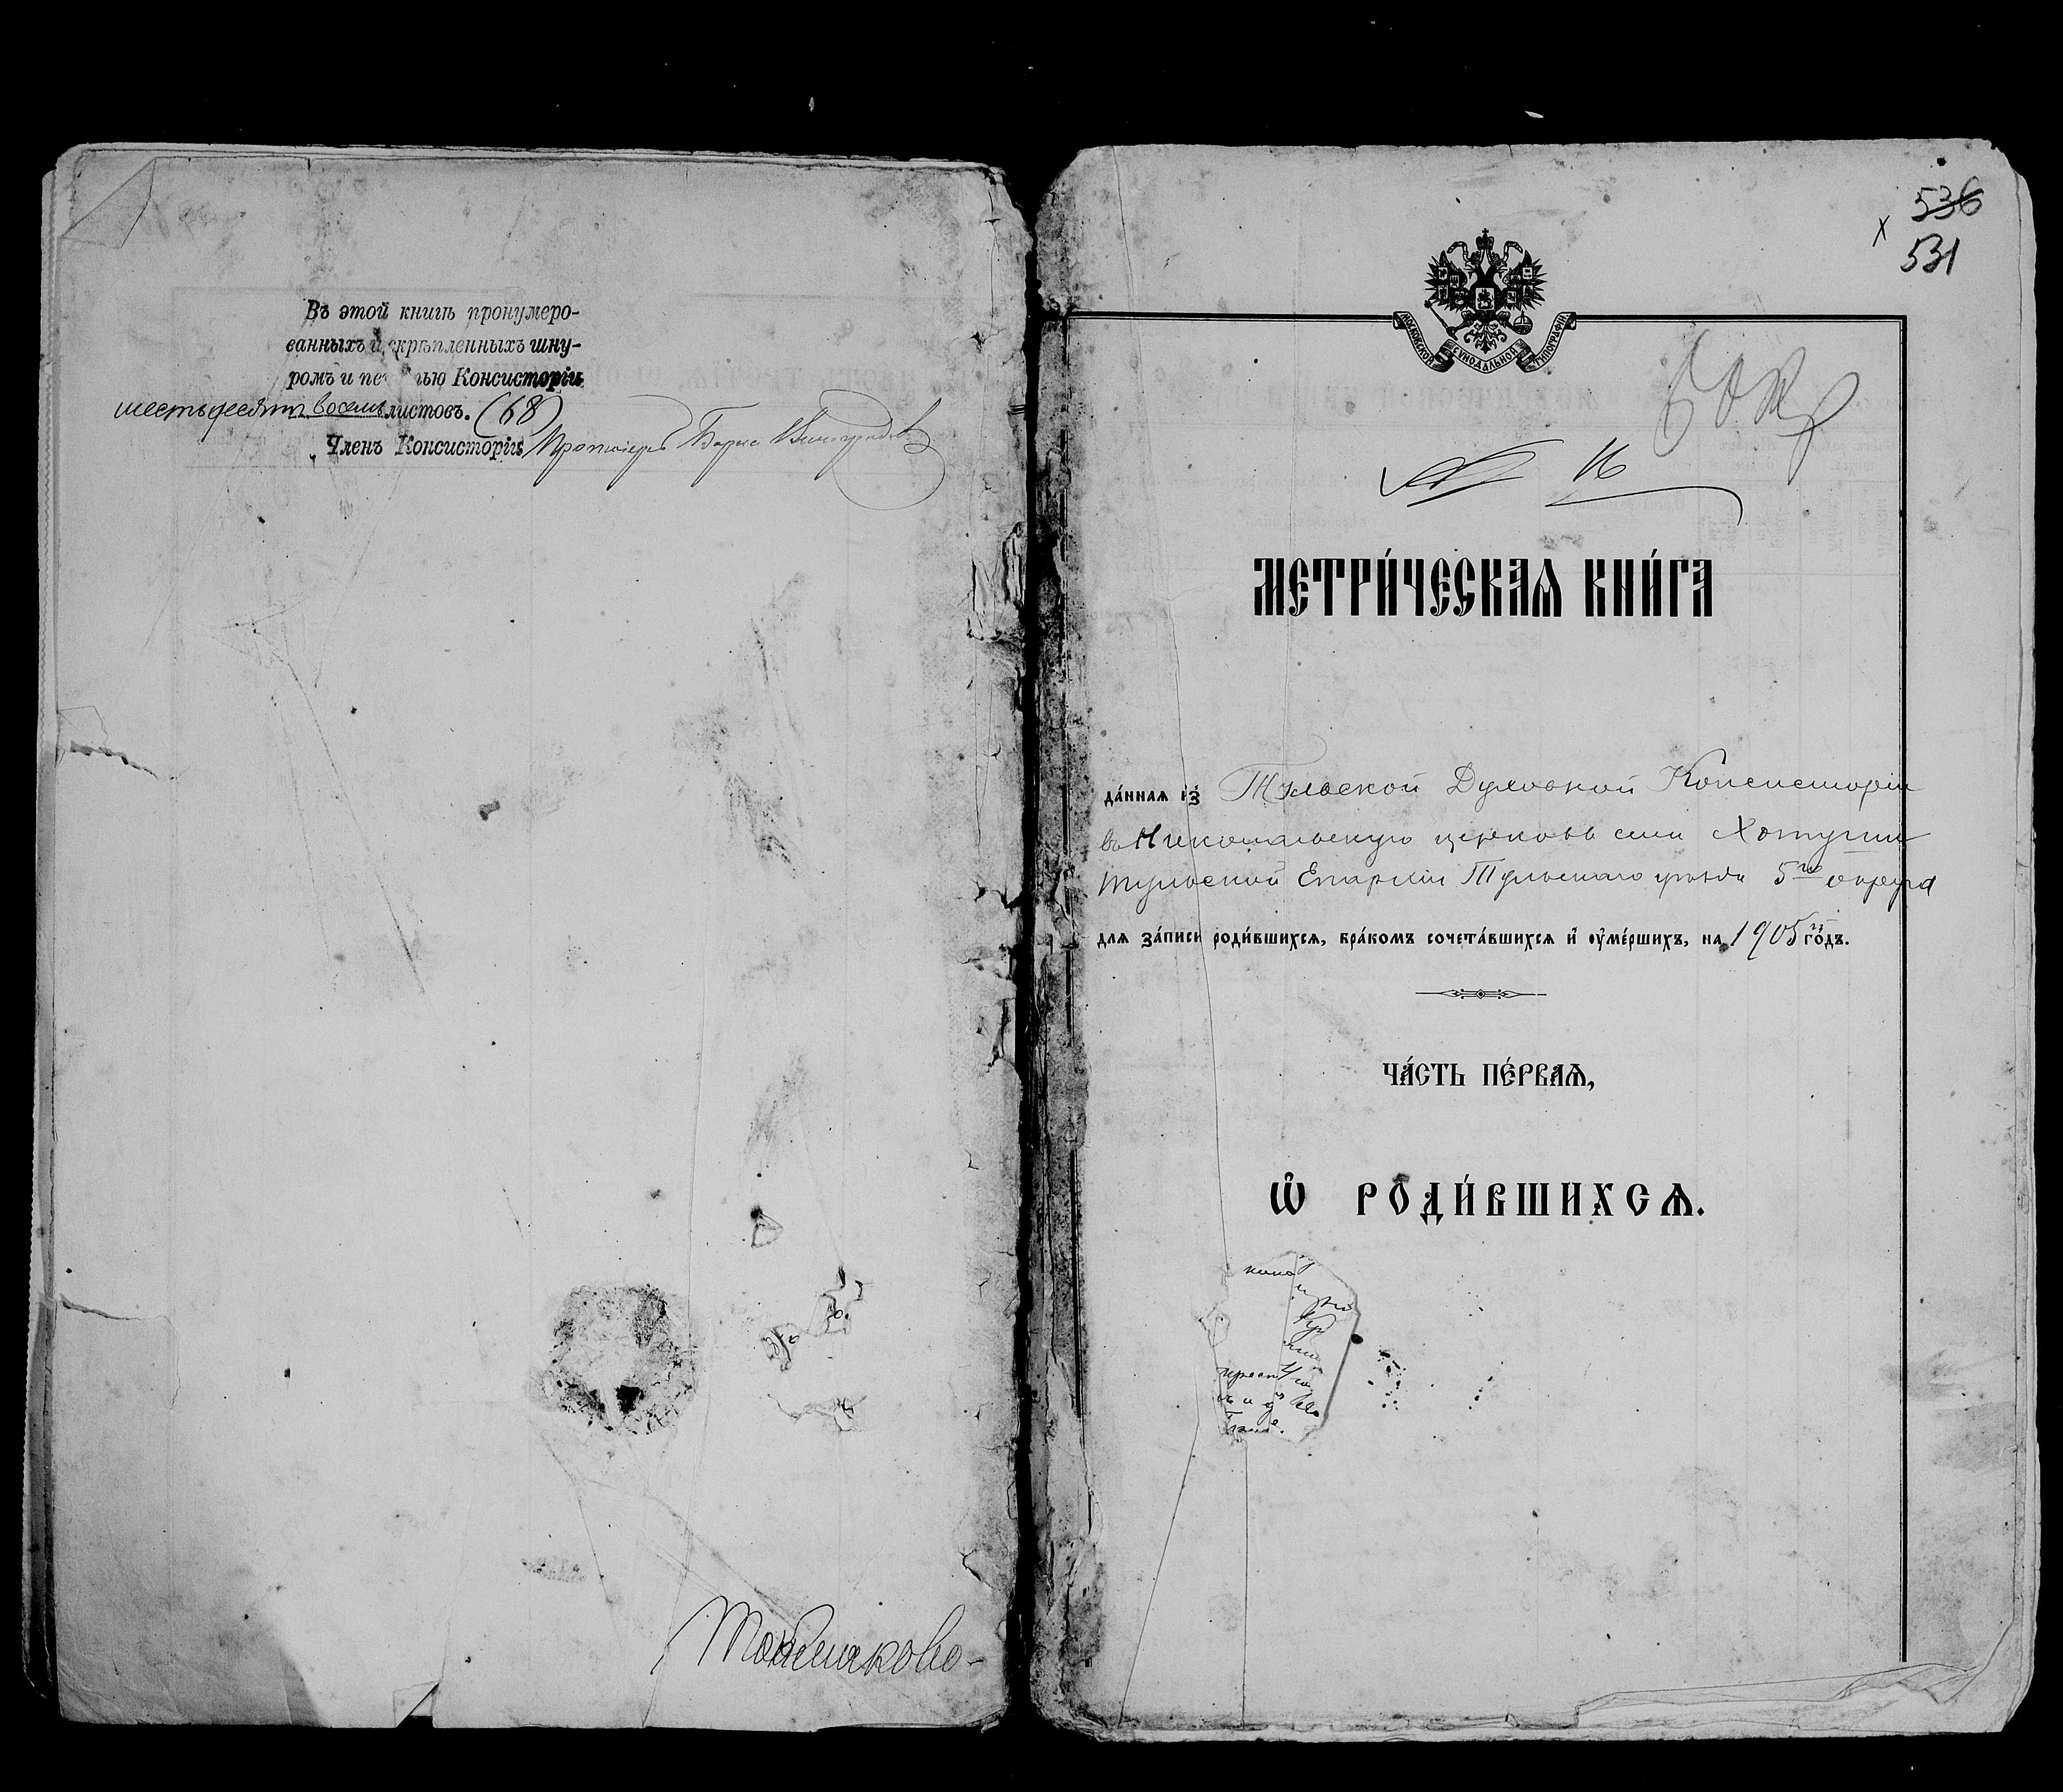 Въ этой книгѣ пронумеро-
ванныхъ и скрѣпленныхъ шну-
ромъ и пе чью Консисторіи
шестьдесятъ восемь листовъ. (68)
Членъ Консисторіи Протоіерей Борис Виноградовъ
536
x 531
МОСКОВСКОЙ СУНОДАЛЬНОЙ ТИПОГРАФІИ
№ 16
МЕТРИ́ЧЕСКАѦ КНИ́ГА
да́ннаѧ и҆з̾ Тульской Духовной Консисторіи
въ Никольскую церковь села Хотуши
Тульской Епархіи Тульскаго уѣзда 5го округа
для за́писи роди́вшихся, бра́комъ сочета́вшихся и҆ ᲂу҆ме́ршихъ, на 1905й го́дъ.
ЧА́СТЬ ПЕ́РВАѦ,
Ѡ҆ РОДИ́ВШИХСѦ.